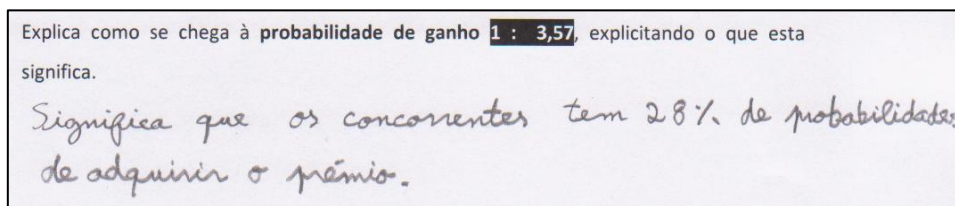 Explica como se chega à probabilidade de ganho 1 : 3,57, explicitando o que esta
significa.
Significa que os concorrentes tem 28% de probabilidades
de adquirir o prémio.